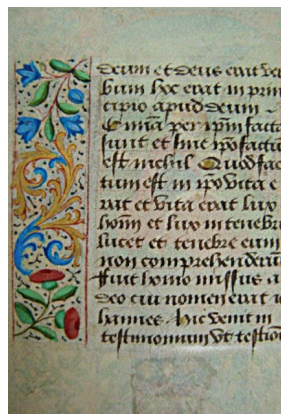 deum et deus erat ver
bum hoc erat in prin
cipio apud deum
Omia per ipm facta
sunt et sine ipo factū
est nichil Quod fac
tum est in ipo vita e
rat et vita erat lux
homī et lux in tenebris
lucet et tenebre eam
non comprehenderūt
fuit homo missus a
deo cui nomen erat io
hannes hic venit in
testimonium vt testimo